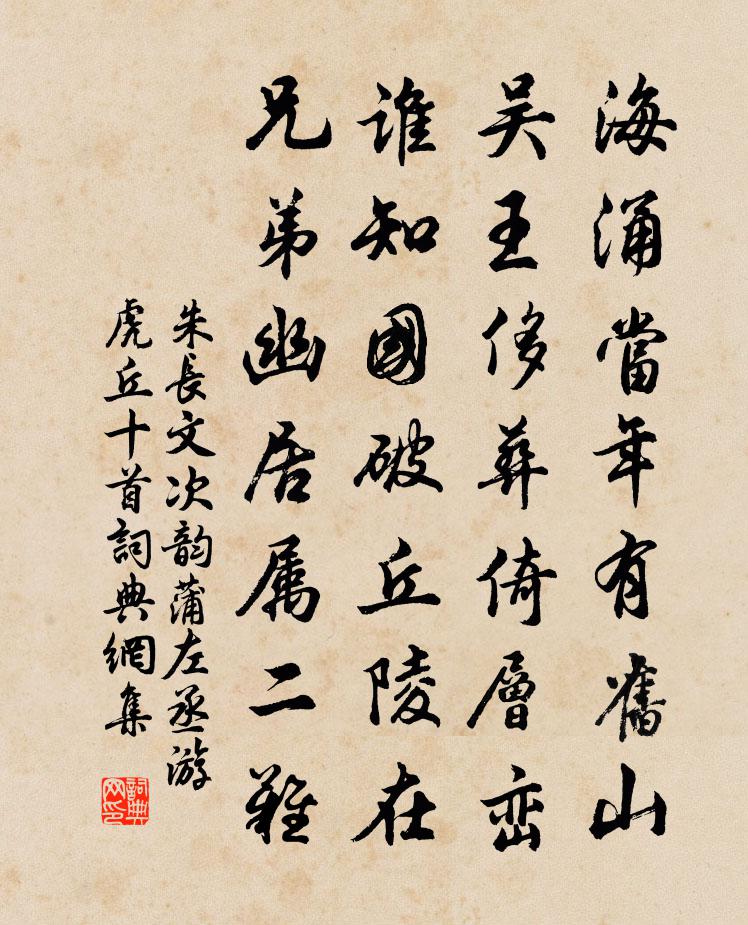 海涌當年有舊山
吴王侈葬倚層巒
誰知國破丘陵在
兄弟幽居属二難
朱長文次韵蒲左丞游
虎丘十首詞典網集
詞典网印